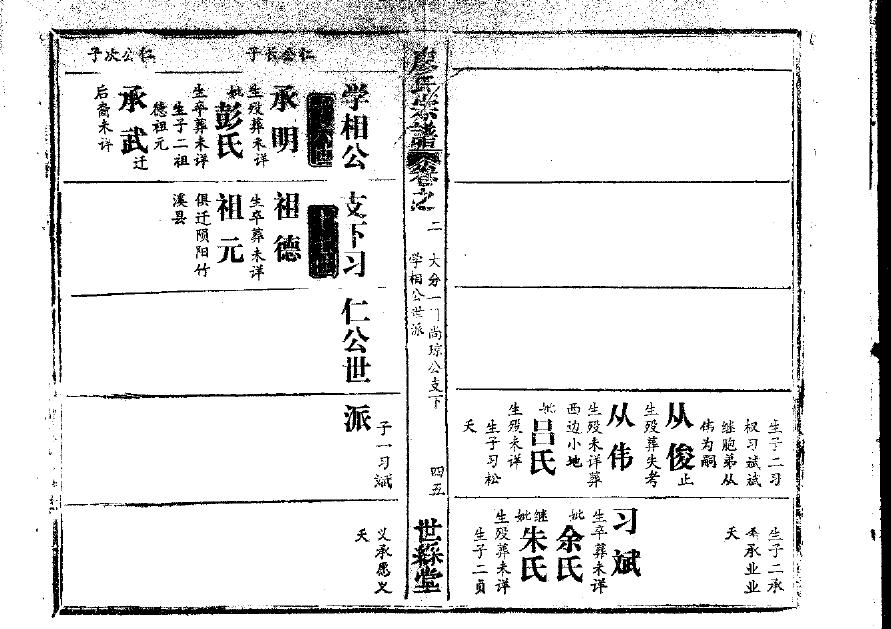 生子二习
权习斌斌
继胞弟从
伟为嗣
从俊止
生殁葬失考
从伟
生殁未详葬
西边小地
妣吕氏
生殁未详
生子习松
夭
生子二承
承业业
夭
习斌
生卒葬未详
妣余氏
继妣朱氏
生殁葬未详
生子二贞
廖氏宗譜
卷之
二
大分一门尚琮公支下
学相公世派
四五
世綵堂
子一习斌
义承愿义
夭
学相公支下习仁公世派
仁公长子
承明
生殁葬未详
妣彭氏
生卒葬未详
生子二祖
德祖元
仁公次子
承武迁
后裔未详
祖德
生卒葬未详
祖元
俱迁陨阳竹
溪县